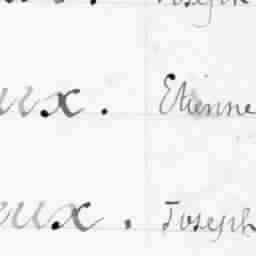 Joseph
eux. Etienne
eux. Joseph